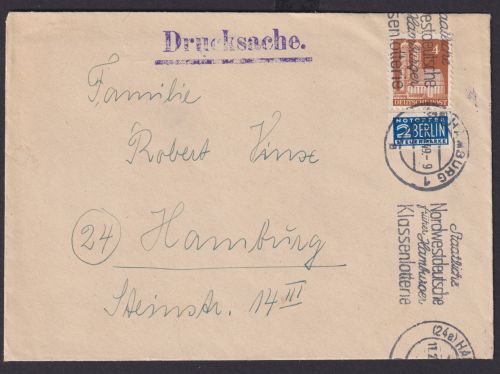 Drucksache.
Familie
Robert Hinse
24 Hamburg
Steinstr. 14 III
Staatliche
Nordwestdeutsche
früher Hamburger
Klassenlotterie
4
DEUTSCHE POST
NOTOPFER
2 BERLIN
STEUERMARKE
HAMBURG 1
Staatliche
Nordwestdeutsche
früher Hamburger
Klassenlotterie
(24a) HA